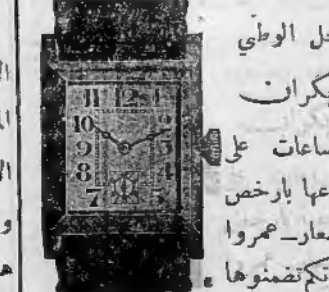 حل الوطني
كران
ساعات على
عها بارخص
عار_عمروا
تكم تضمنوها
11 12 1
10 2
9 3
8
7 5